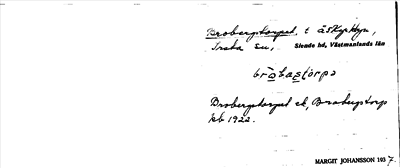 Brobergstorpet, t åskyttegn,
Irsta sn, Siende hd, Västmanlands län
bråbastorpə
Brobergstorpet ek, Brobergstorp
kb 1922.
MARGIT JOHANSSON 1937.